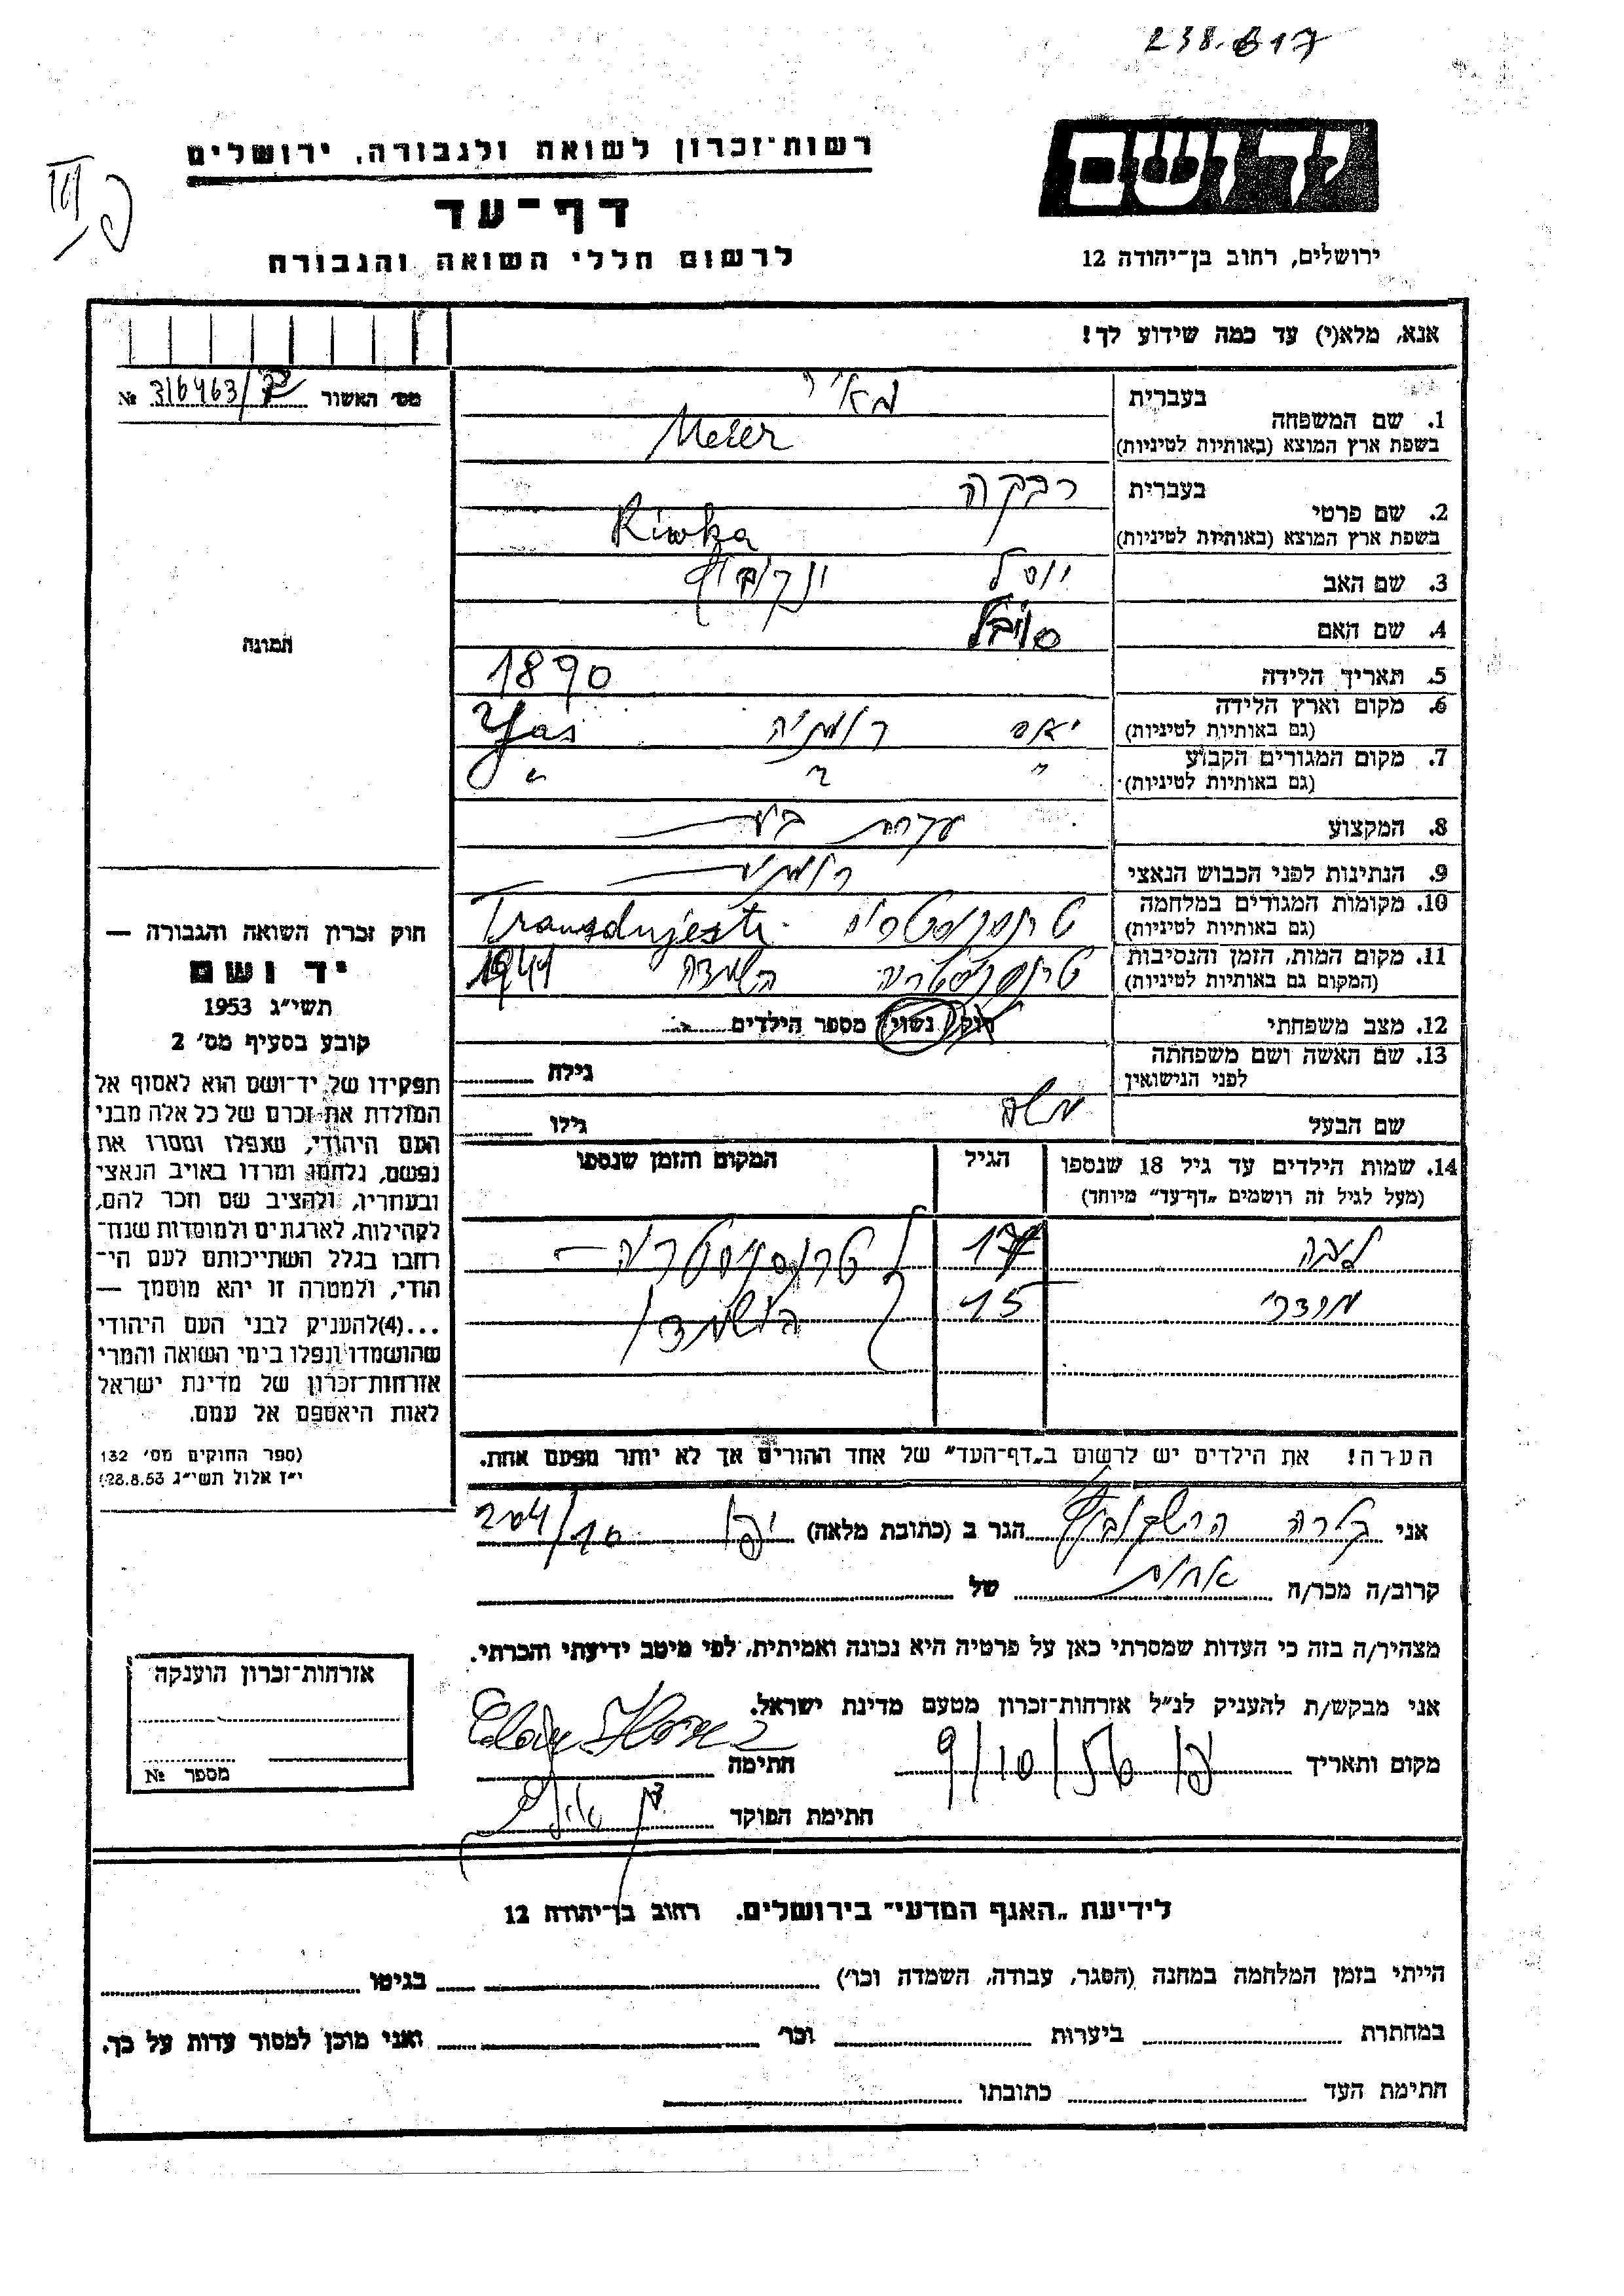 238.617
יד ושם
רשות־זכרון לשואה ולגבורה, ירושלים
דף־עד
לרשום חללי השואה והגבורה
ירושלים, רחוב בן־יהודה 12
אנא, מלא(י) עד כמה שידוע לך!
מס' האשור 316463/ №
1. שם המשפחה בעברית מאיר
בשפת ארץ המוצא (באותיות לטיניות) Meier
2. שם פרטי בעברית רבקה
בשפת ארץ המוצא (באותיות לטיניות) Riwka
3. שם האב יוסל ינקוביץ
4. שם האם סויבל
5. תאריך הלידה 1890
6. מקום וארץ הלידה יאס רומניה Yas
(גם באותיות לטיניות)
7. מקום המגורים הקבוע " " "
(גם באותיות לטיניות)
8. המקצוע עקרת בית
9. הנתינות לפני הכבוש הנאצי רומני
10. מקומות המגורים במלחמה טרנסניסטריה
(גם באותיות לטיניות)
11. מקום המות, הזמן והנסיבות טרנסניסטריה השמדה 1941
(המקום גם באותיות לטיניות)
12. מצב משפחתי רוק/ נשוי/ מספר הילדים
13. שם האשה ושם משפחתה גילה
לפני הנישואין
שם הבעל משה גילו
14. שמות הילדים עד גיל 18 שנספו הגיל המקום והזמן שנספו
(מעל לגיל זה רושמים „דף־עד" מיוחד)
17 טרנסניסטריה
מרדכי 15 השמדה
הערה! את הילדים יש לרשום ב„דף־העד" של אחד ההורים אך לא יותר מפעם אחת.
תמונה
חוק זכרון השואה והגבורה —
יד ושם
תשי"ג 1953
קובע בסעיף מס' 2
תפקידו של יד־ושם הוא לאסוף אל
המולדת את זכרם של כל אלה מבני
העם היהודי, שנפלו ומסרו את
נפשם, נלחמו ומרדו באויב הנאצי
ובעוזריו, ולהציב שם וזכר להם,
לקהילות, לארגונים ולמוסדות שנח־
רחבו בגלל השתייכותם לעם הי־
הודי, ולמטרה זו יהא מוסמך —
...(4)להעניק לבני העם היהודי
שהושמדו ונפלו בימי השואה והמרי
אזרחות־זכרון של מדינת ישראל
לאות היאספם אל עמם.
(ספר החוקים מס' 132
י"ז אלול תשי"ג 28.8.53)
אני קלרה הרשקוביץ הגר ב (כתובת מלאה) יפו 204/10
קרוב/ה מכר/ה אחות של
מצהיר/ה בזה כי העדות שמסרתי כאן על פרטיה היא נכונה ואמיתית, לפי מיטב ידיעתי והכרתי.
אני מבקש/ת להעניק לנ"ל אזרחות־זכרון מטעם מדינת ישראל.
מקום ותאריך 9/10/56 חתימה
חתימת הפוקד
אזרחות־זכרון הוענקה
מספר №
לידיעת „האגף המדעי" בירושלים. רחוב בן־יהודה 12
הייתי בזמן המלחמה במחנה (הסגר, עבודה, השמדה וכו') בגיטו
במחתרת ביערות וכו' ואני מוכן למסור עדות על כך.
חתימת העד כתובתו